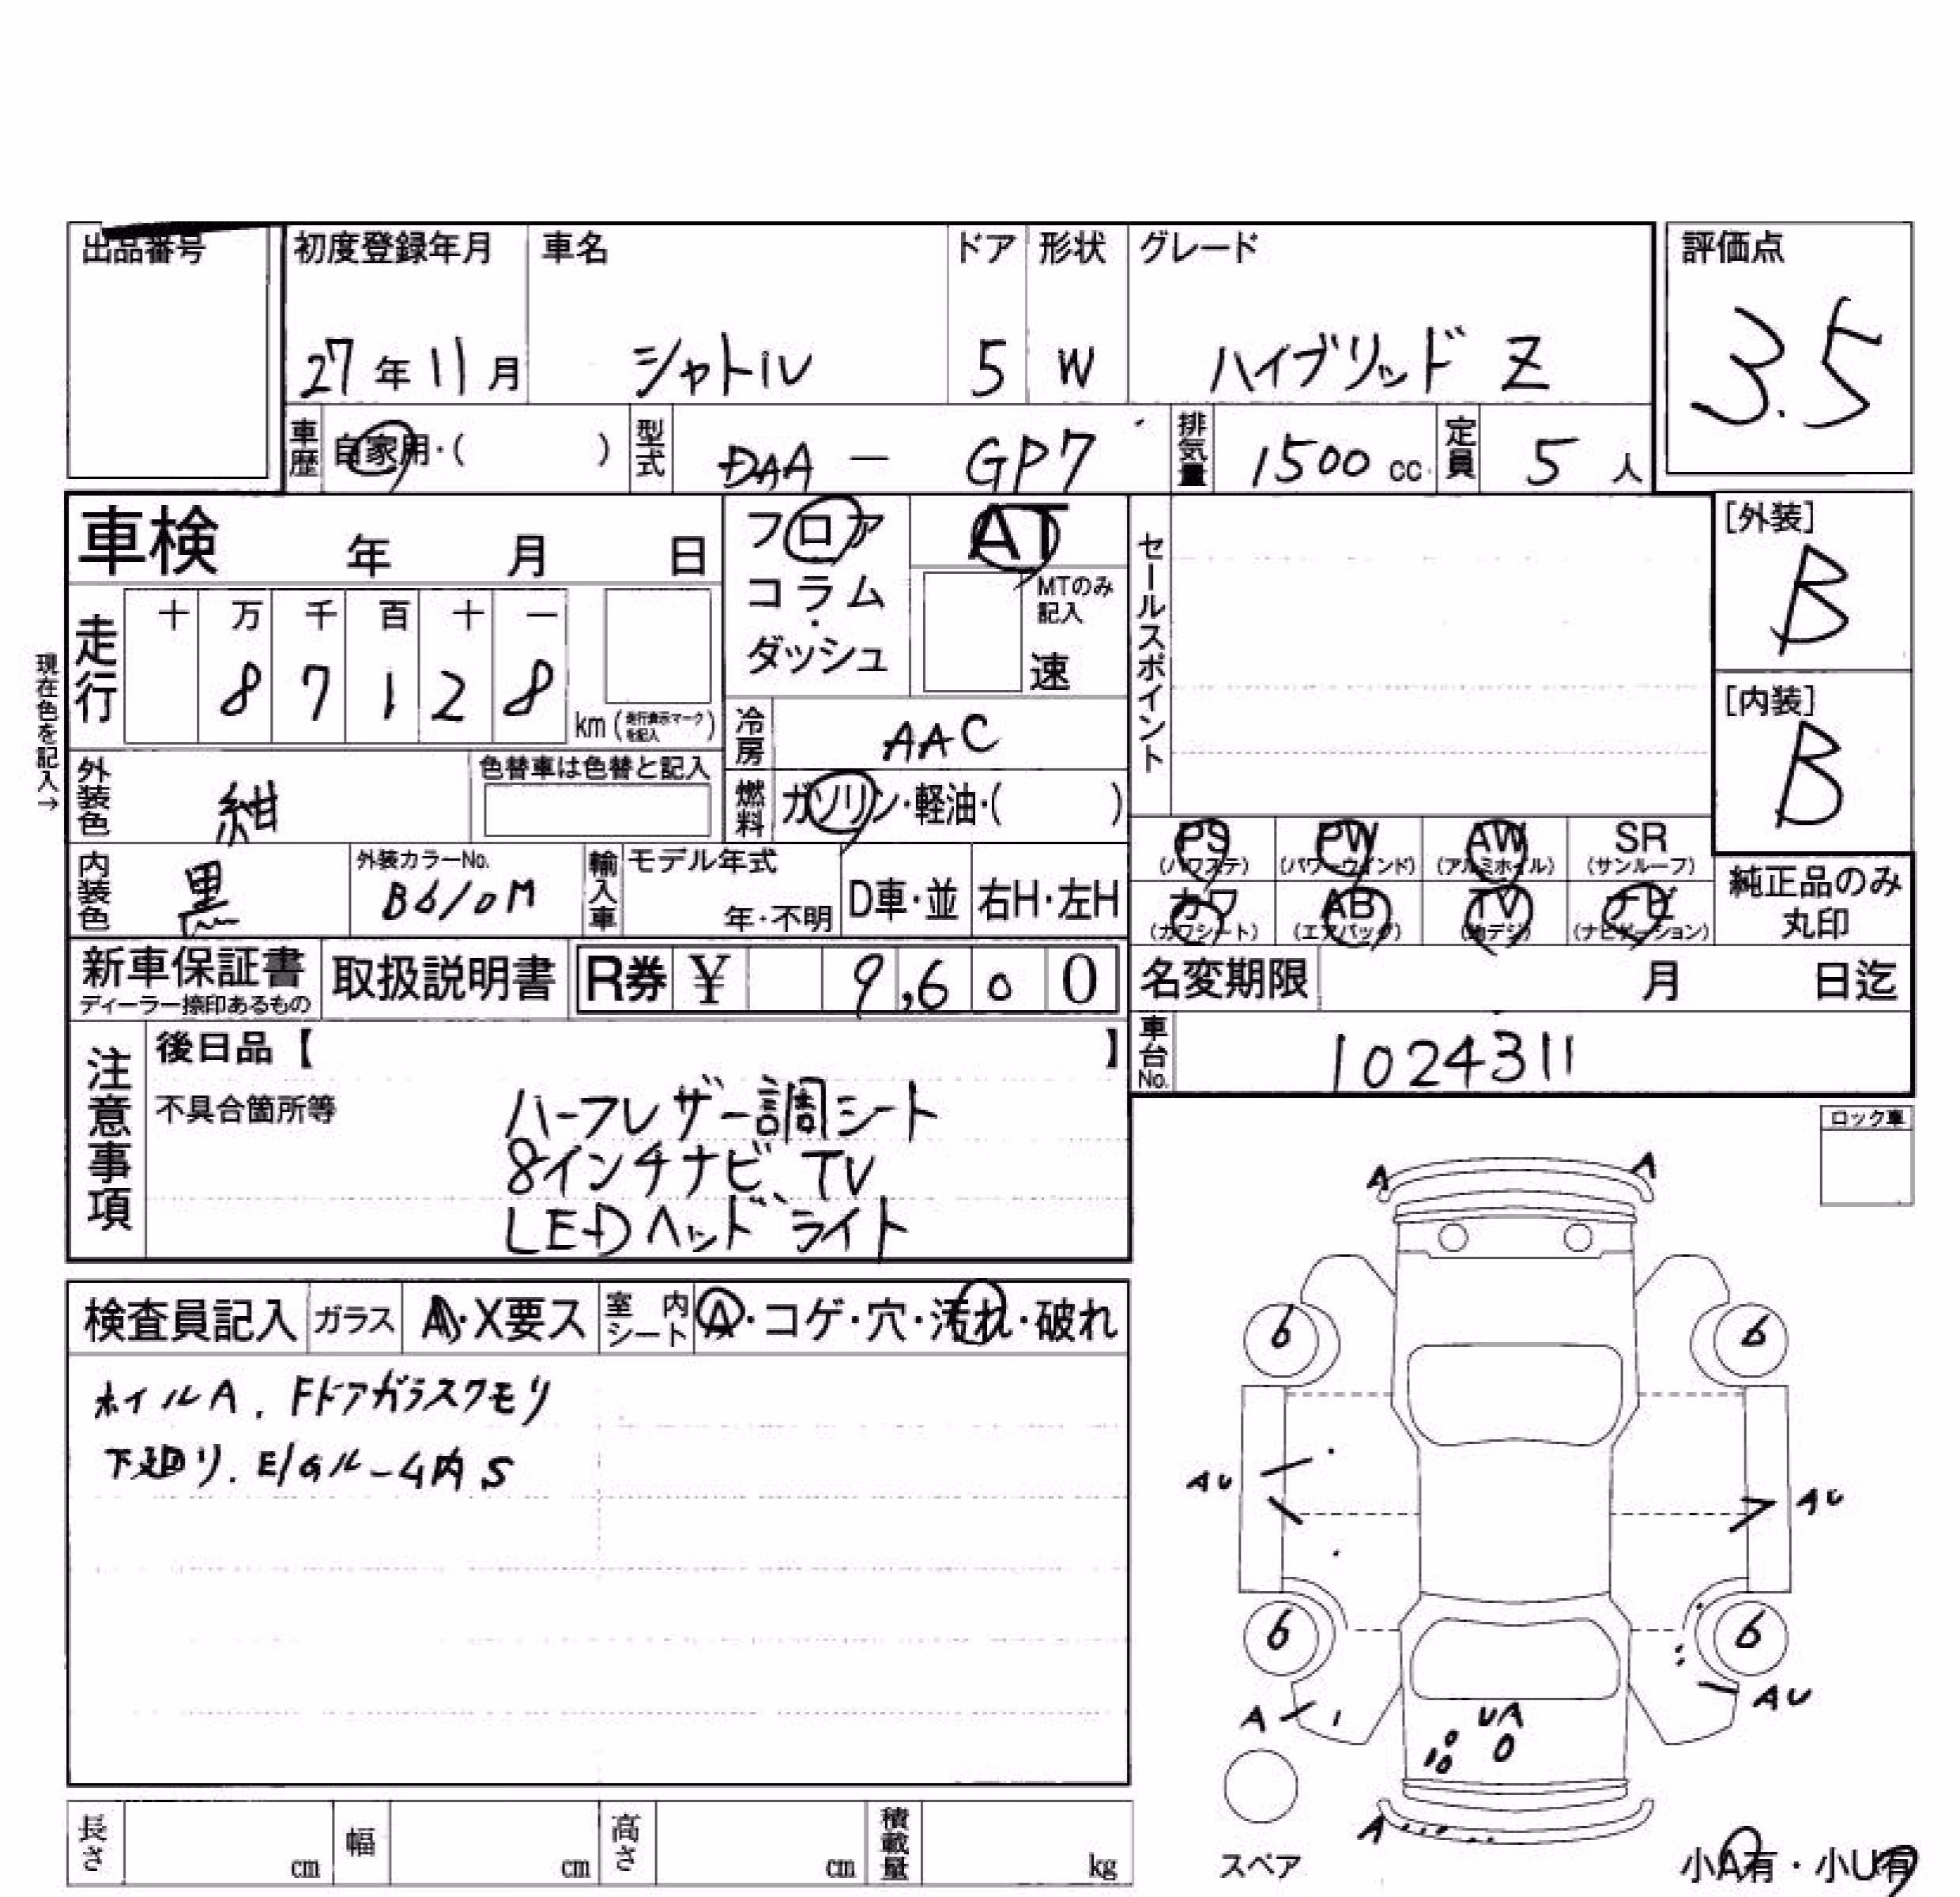 出品番号
初度登録年月 車名 ドア 形状 グレード 評価点
27年11月 シャトル 5 W ハイブリッド Z 3.5
車歴 自家用・( ) 型式 DAA - GP7 排気量 1500 cc 定員 5 人
車検 年 月 日
フロア
コラム
・
ダッシュ
AT
MTのみ
記入
速
セールスポイント
[外装]
B
[内装]
B
現在色を記入→
走行 十 万 千 百 十 一
8 7 1 2 8 km(走行表示マークを記入)
冷房 AAC
外装色 紺 色替車は色替と記入
燃料 ガソリン・軽油・( )
PS PW AW SR
(パワステ) (パワーウインド) (アルミホイル) (サンルーフ)
カワ AB TV ナビ
(カワシート) (エアバッグ) (地デジ) (ナビゲーション)
純正品のみ
丸印
内装色 黒 外装カラーNo. B610M 輸入車 モデル年式 年・不明 D車・並 右H・左H
新車保証書 取扱説明書 R券 ¥ 9,600
ディーラー捺印あるもの
名変期限 月 日迄
車台No. 1024311
注意事項
後日品【 】
不具合箇所等
ハーフレザー調シート
8インチナビ、TV
LEDヘッドライト
ロック車
検査員記入 ガラス A・X要ス 室内シート A・コゲ・穴・汚れ・破れ
ホイルA. Fドアガラスクモリ
下廻り. E/Gルーム内S
A A
6 6
AU AU
6 6
A AU
UA
A
スペア
小A有・小U有
長さ cm 幅 cm 高さ cm 積載量 kg